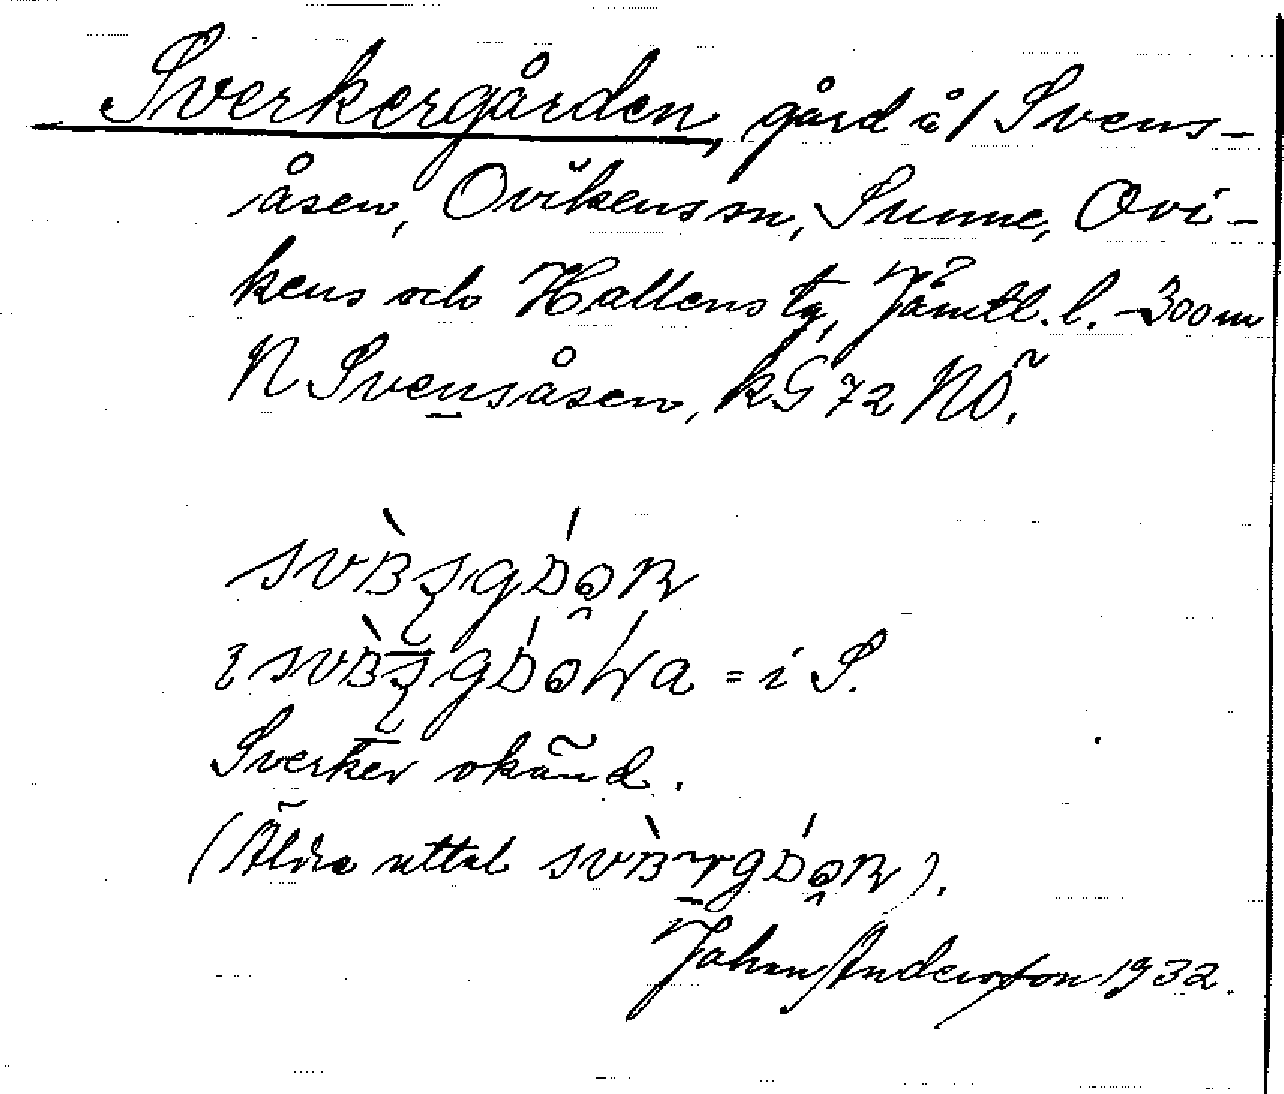 Sverkergården, gård å 1 Svens-
åsen, Ovikens sn, Sunne, Ovi-
kens och Hallens tg, Jämtl. l. - 300 m
N Svensåsen, kG 72 NÖ.
= i S.
Sverker okänd.
(Äldre uttal ).
Johan Anderson 1932.